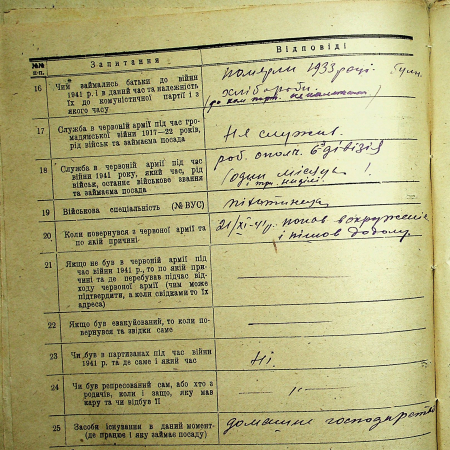 №№ п-п.
Запитання
Відповіді
16
Чим займались батьки до війни
1941 р. і в даний час та належність
їх до комуністичної партії і з
якого часу
померли 1933 році
хлібороби
(до ком парт. не належали)
17
Служба в червоній армії під час гро-
мадянської війни 1917—22 років,
рід військ та займаєма посада
Не служив.
18
Служба в червоній армії під час
війни 1941 року, який час, рід
військ, останнє військове звання
та займаєма посада
роб. ополч. 6а дівізія
(один місяць
і три неділі)
19
Військова спеціальність (№ ВУС)
піхотинець
20
Коли повернувся з червоної армії та
по якій причині
21/XI-41р. попав в окруженіе
і пішов додому.
21
Якщо не був в червоній армії під
час війни 1941 р., то по якій при-
чині та де перебував підчас від-
ходу червоної армії (чим може
підтвердити, а коли свідками то їх
адреса)
22
Якщо був евакуйований, то коли по-
вернувся та звідки саме
23
Чи був в партизанах під час війни
1941 р. та де саме і який час
Ні.
24
Чи був репресований сам, або хто з
родичів, коли і защо, яку мав
кару та чи відбув її
— " —
25
Засоби існування в даний момент-
(де працює і яку займає посаду)
домашнє господарство